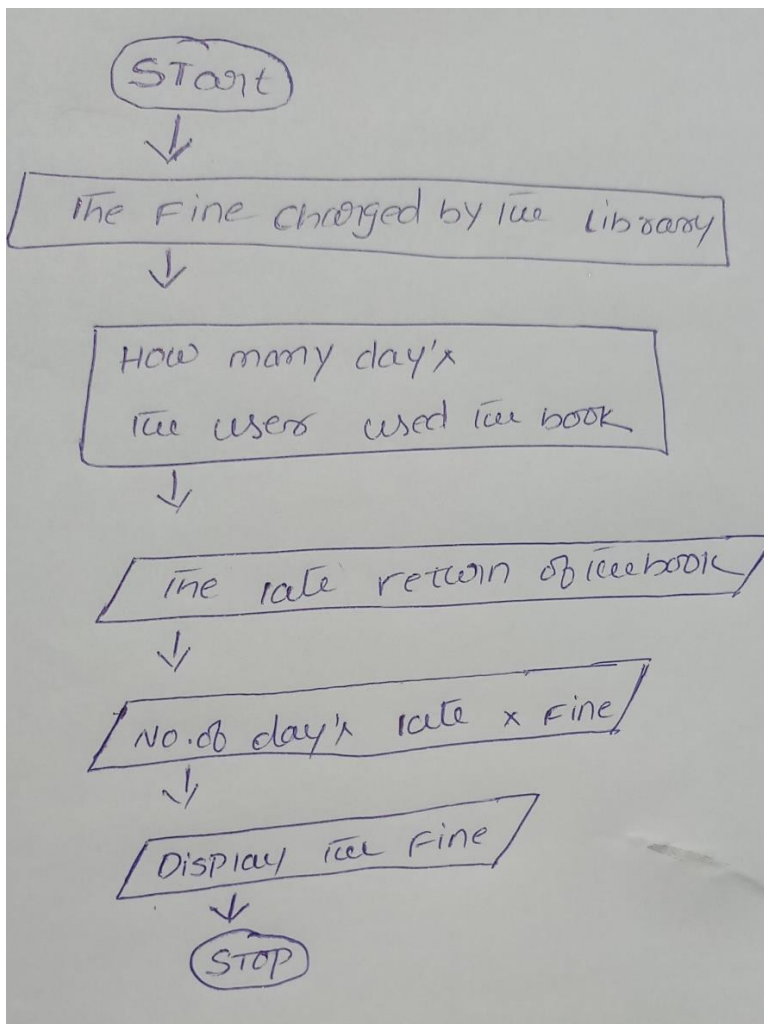 START
The Fine charged by the Library
How many day's
the user used the book
The late return of the book
No.of day's late x Fine
Display the Fine
STOP